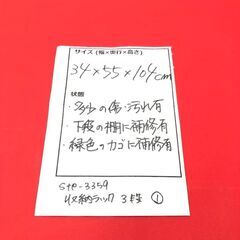 サイズ(幅×奥行×高さ)
34×55×104cm
状態
・多少の傷・汚れ有
・下段の棚に補修有
・緑色のカゴに補修有
Stp-3359
収納ラック 3段 ①